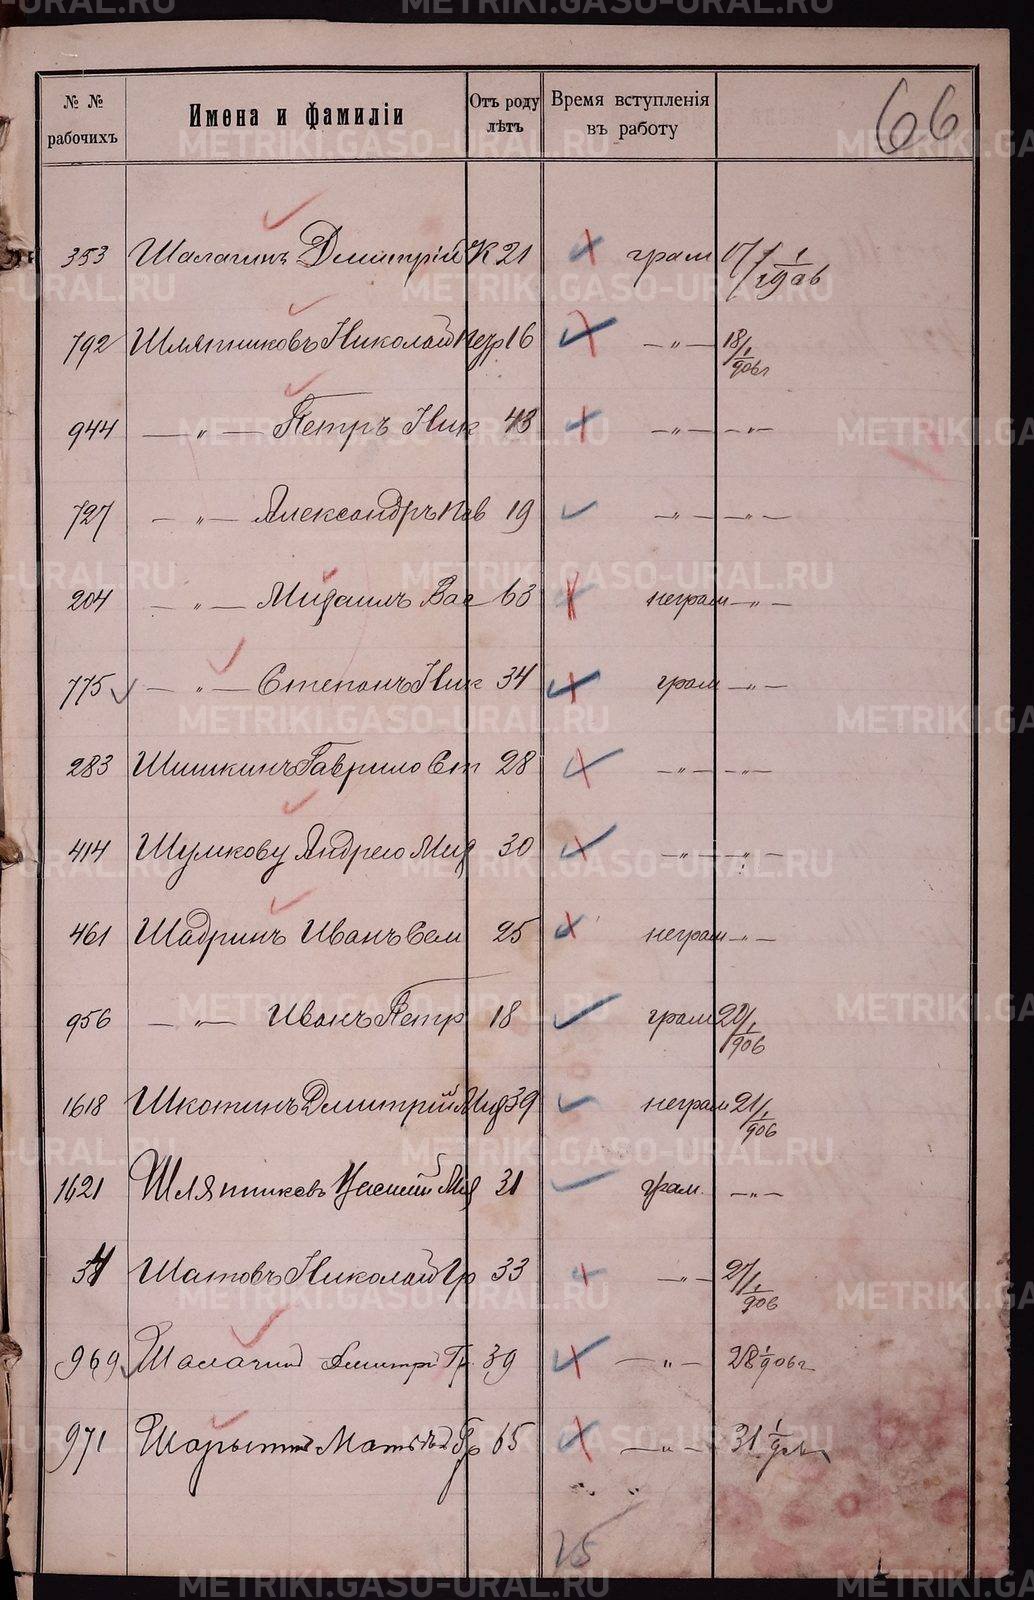 66
№ № рабочихъ Имена и фамиліи Отъ роду лѣтъ Время вступленія въ работу
353 Шалагинъ Дмитрій К 21 грам 17/1 1906
792 Шляпниковъ Николай Петр 16 —„— 18/1 906г
944 —„— Петръ Ник 43 —„— —„—
727 —„— Александръ Пав 19 —„— —„—
204 —„— Михаилъ Вас 63 неграм —„—
775 —„— Степанъ Ник 34 грам —„—
283 Шишкинъ Гаврило Ст 28 —„— —„—
414 Шумкову Андрею Мих 30 —„— —„—
461 Шадринъ Иванъ Сем 25 неграм —„—
956 —„— Иванъ Петр 18 грам 20/1 906
1618 Шкотинъ Дмитрій Мих 39 неграм 21/1 906
1621 Шляпниковъ Мих 31 грам. —„—
Шатовъ Николай Гр 33 —„— 27/1 906
969 Шалагинъ Дмитрі Гр. 39 —„— 28 1/906г
971 Матвѣй Гр 65 —„— 31 1/
„ „
METRIKI.GASO-URAL.RU